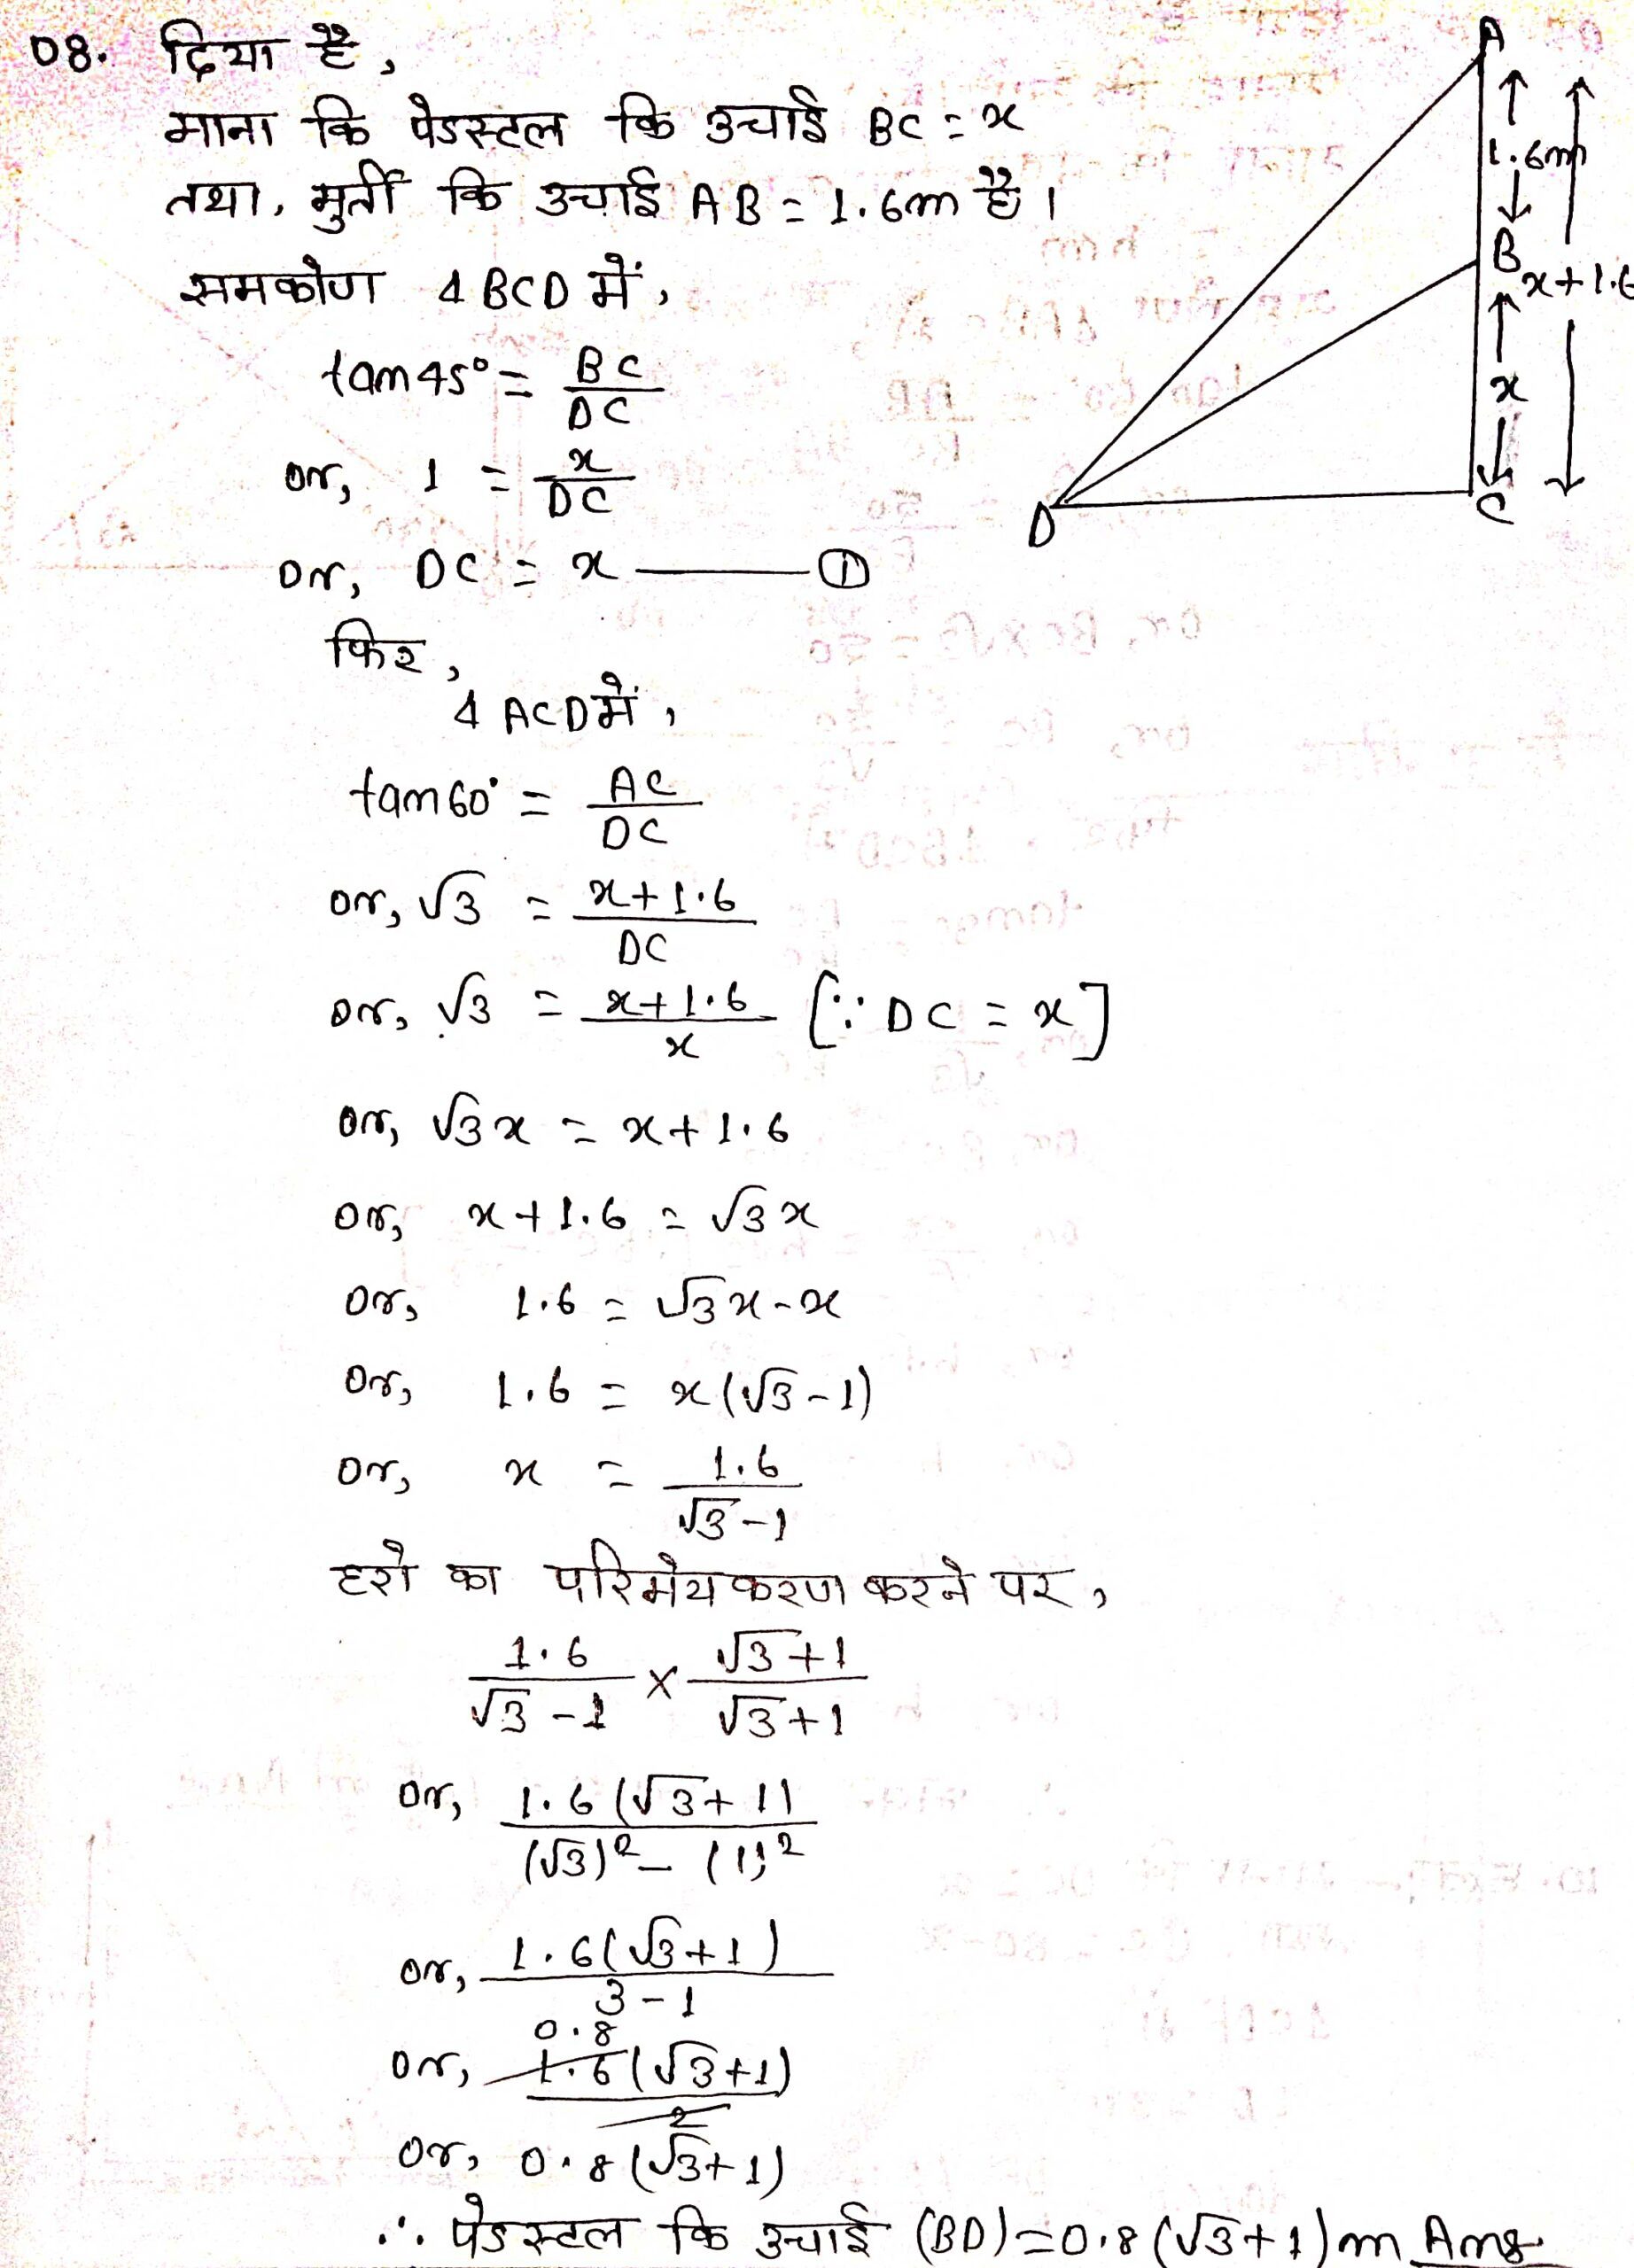 08. दिया है,
माना कि पेडस्टल कि उचाई BC = x
तथा, मुर्ती कि उचाई AB = 1.6m है।
समकोण △ BCD में,
tan 45° = BC/DC
or, 1 = x/DC
or, DC = x ——— ①
फिर,
△ ACD में,
tan 60° = AC/DC
or, √3 = x+1.6/DC
or, √3 = x+1.6/x [∵ DC = x]
or, √3x = x+1.6
or, x+1.6 = √3x
or, 1.6 = √3x-x
or, 1.6 = x(√3-1)
or, x = 1.6/√3-1
हरो का परिमेयकरण करने पर,
1.6/√3-1 × √3+1/√3+1
or, 1.6(√3+1)/(√3)²-(1)²
or, 1.6(√3+1)/3-1
0.8
or, 1.6(√3+1)/2
or, 0.8(√3+1)
∴ पेडस्टल कि उचाई (BD)=0.8(√3+1)m Ans
A
1.6m
B
x+1.6
x
D
C